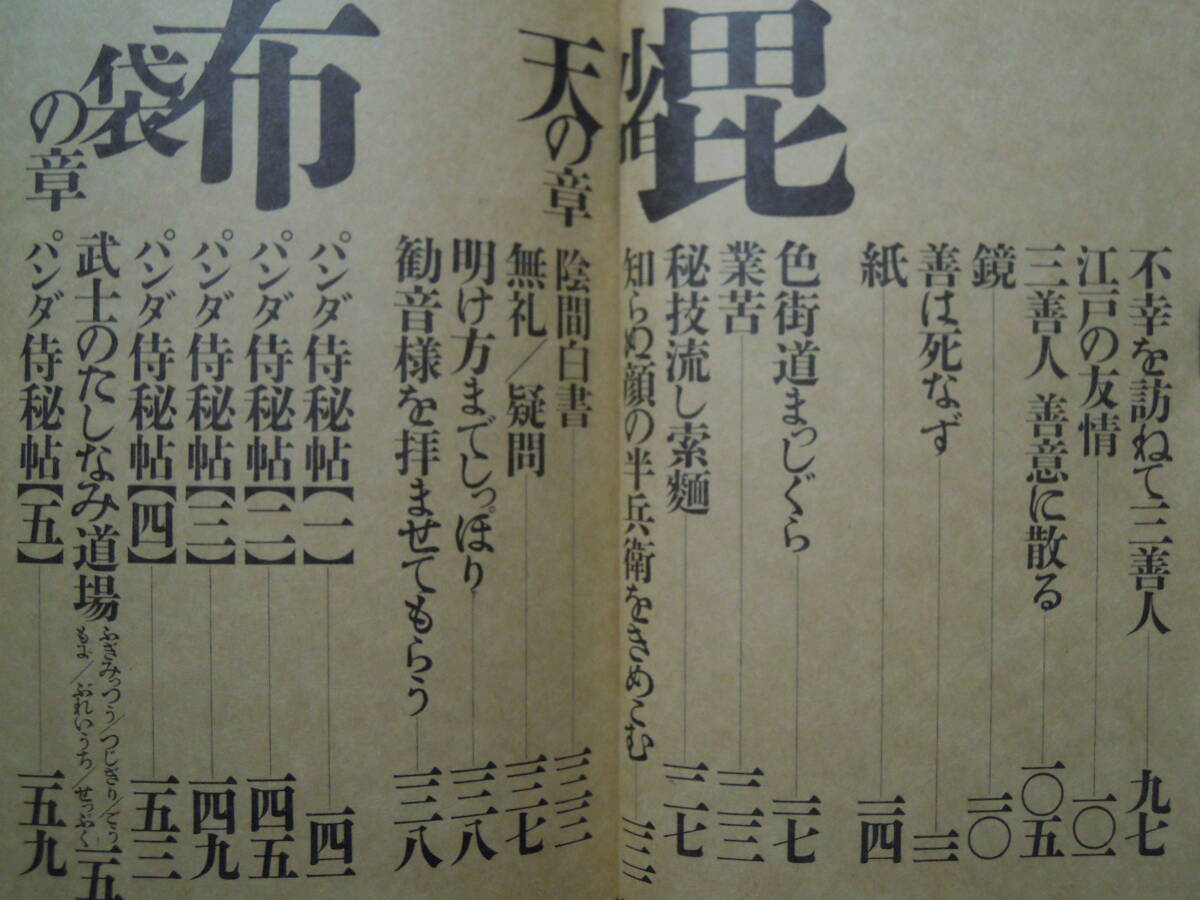 不幸を訪ねて三善人 九七
江戸の友情 一〇一
三善人 善意に散る 一〇五
鏡 一一〇
善は死なず
紙 一一四
毘
天の章
色街道まっしぐら 一一七
業苦 一二三
秘技流し索麵 一二七
知らぬ顔の半兵衛をきめこむ
陰間白書 一三三
無礼／疑問 一三七
明け方までしっぽり 一三八
勧音様を拝ませてもらう 一三八
布袋の章
パンダ侍秘帖【一】 一四一
パンダ侍秘帖【二】 一四五
パンダ侍秘帖【三】 一四九
パンダ侍秘帖【四】 一五三
武士のたしなみ道場 ふぎみっつう／つじぎり／ごう
もん／ぶれいうち／せっぷく
パンダ侍秘帖【五】 一五九